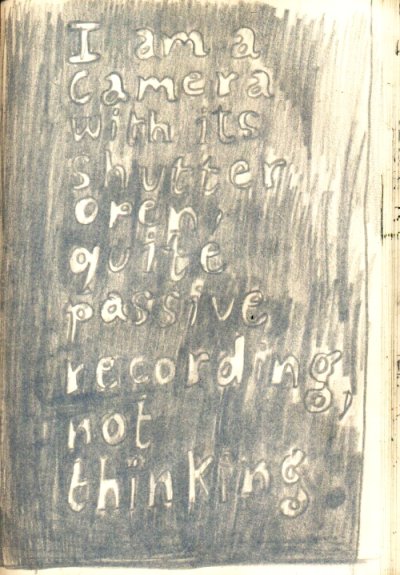 I am a
Camera
with its
shutter
open,
quite
passive
recording,
not
thinking.